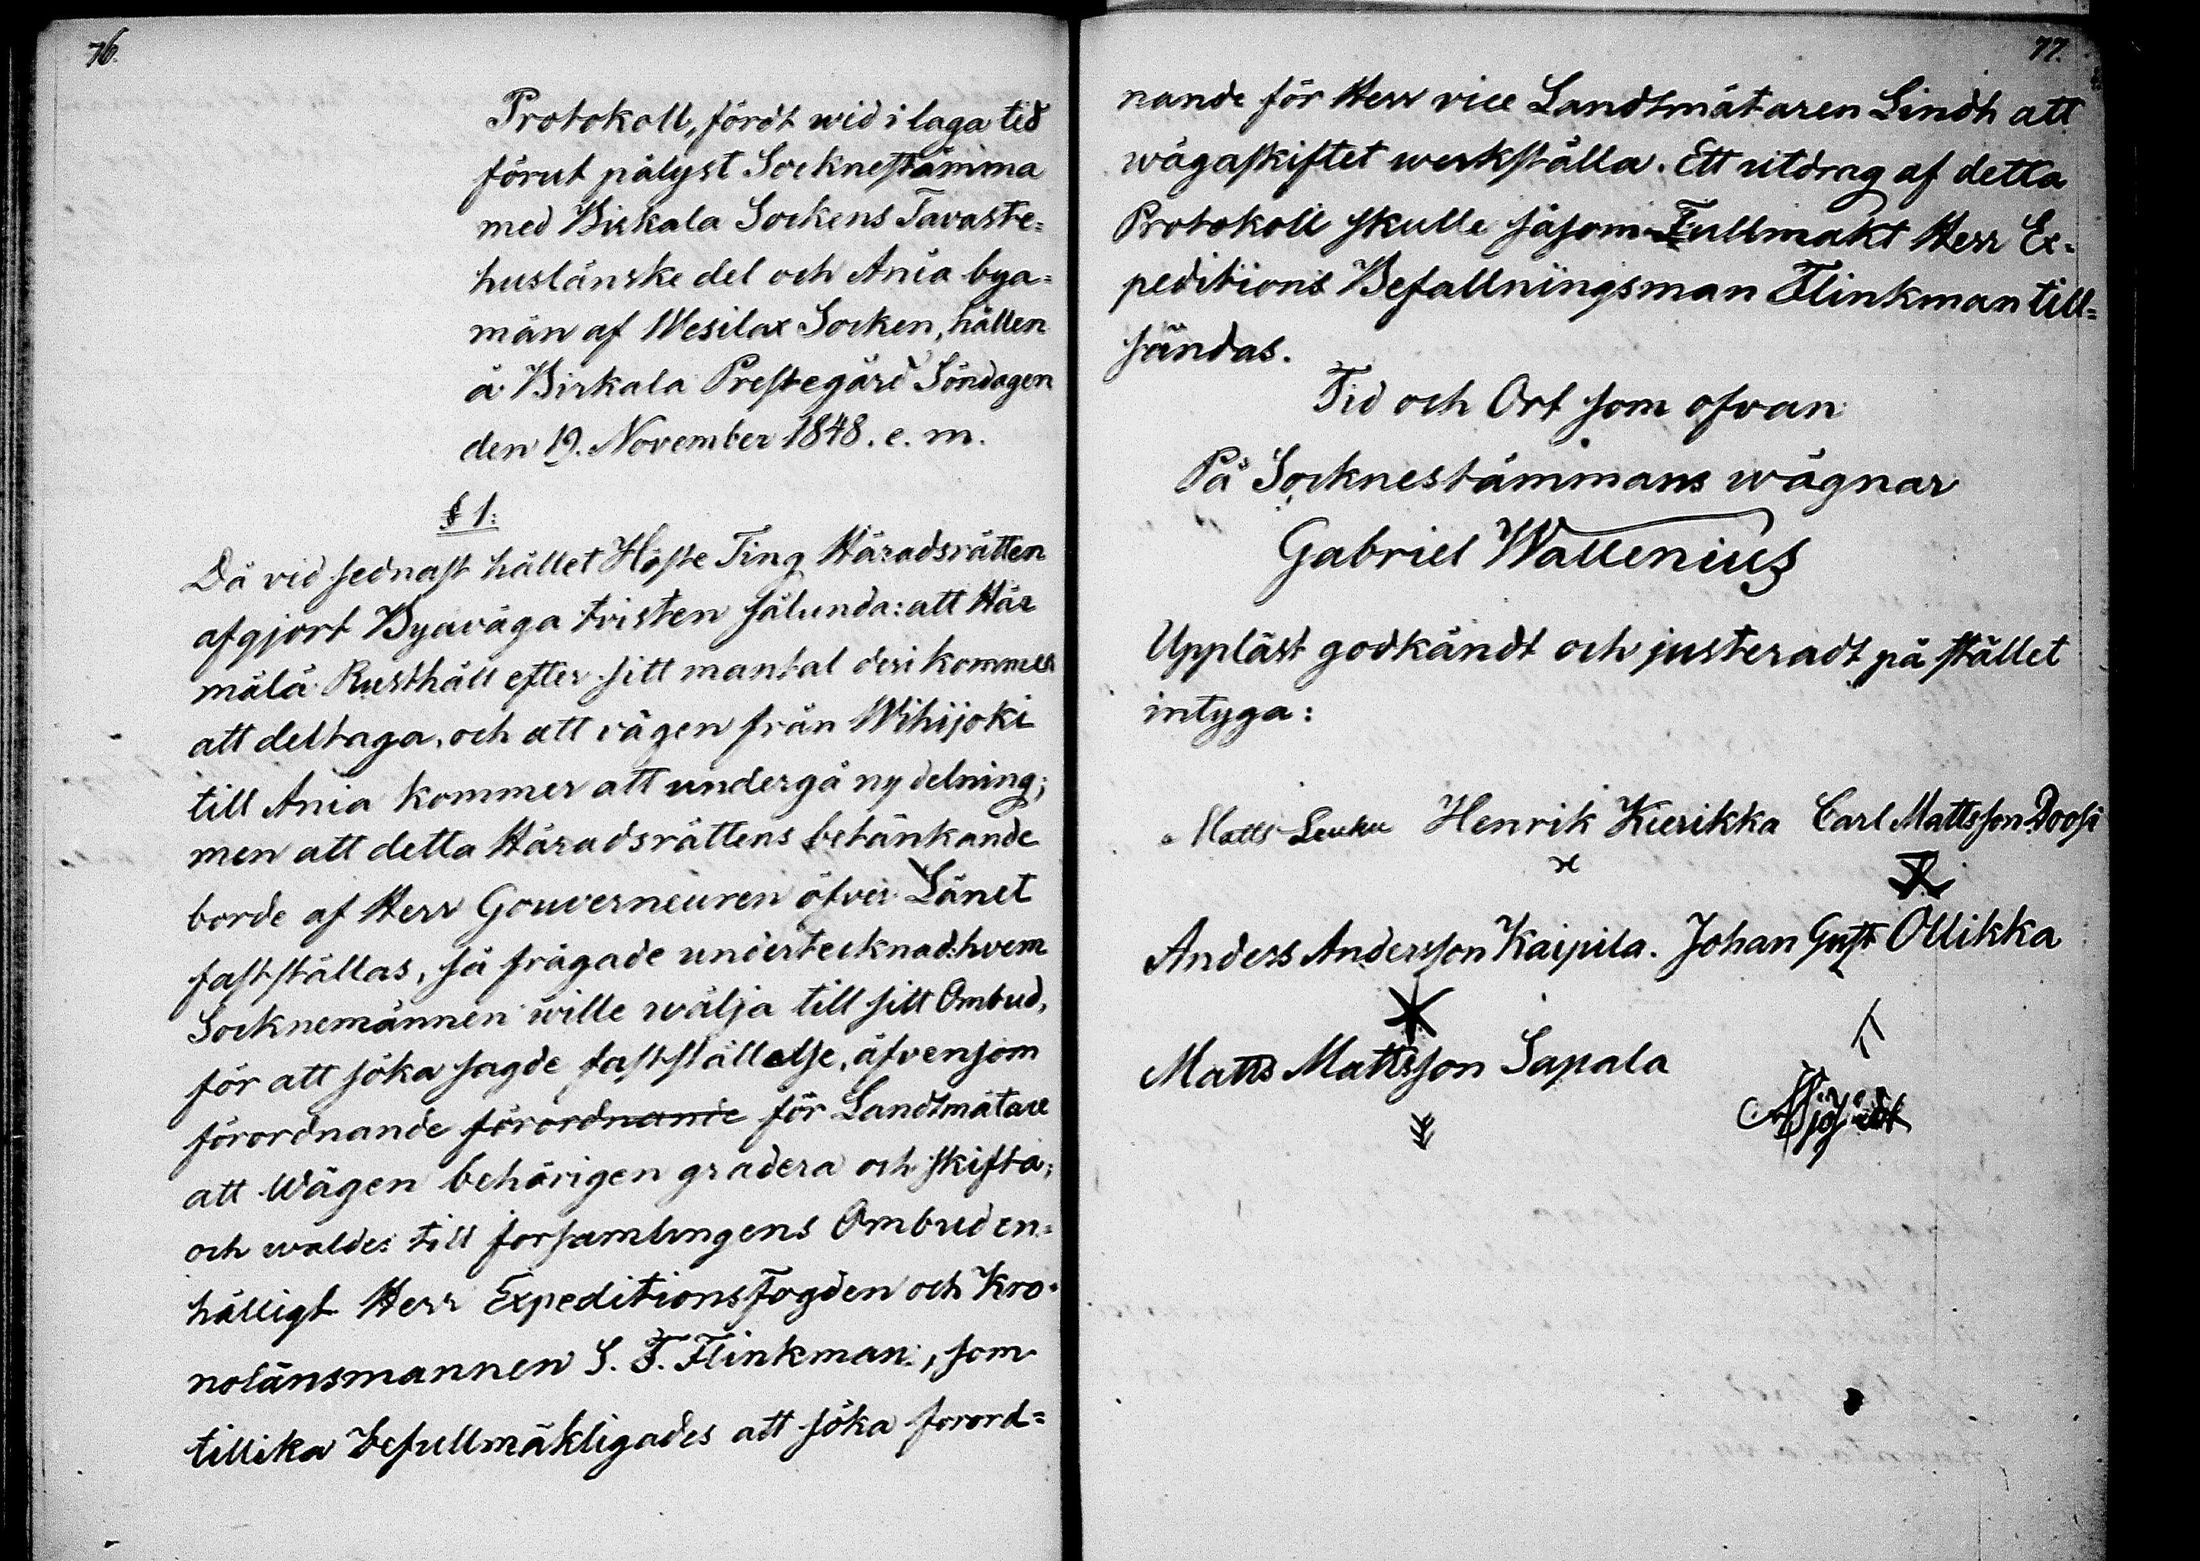 76.
Protokoll, fördt wid i laga tid
förut pålyst Socknestämma
med Birkala Sockens Tavaste=
huslänske del och Ania bya=
män af Wesilax Socken, hållen
å Birkala Prestegård Söndagen
den 19. November 1848. e. m.
§ 1:
Då vid sednast hållet Höste Ting Häradsrätten
afgjort Byaväga tvisten sålunda: att Här
mälä Rusthåll efter sitt mantal deri kommer
att deltaga, och att vägen från Wihijoki
till Ania kommer att undergå ny delning;
men att detta Häradsrättens betänkande
borde af Herr Gouverneuren öfver Länet
fastställas, så frågade undertecknad: hvem
Socknemännen wille wälja till sitt Ombud,
för att söka sagde fastställelse, äfvensom
förordnande förordnande för Landtmätare
att Wägen behörigen gradera och skifta;
och waldes till församlingens Ombud en=
hälligt Herr Expeditions Fogden och Kro=
nolänsmannen S. F. Flinkman, som
tillika befullmäktigades att söka forord=
77.
nande för Herr vice Landtmätaren Lindh att
wägaskiftet werkställa. Ett utdrag af detta
Protokoll skulle såsom Fullmakt Herr Ex=
peditions Befallningsman Flinkman till=
sändas.
Tid och Ort som ofvan
På Socknestämmans wägnar
Gabriel Wallenius
Uppläst godkändt och justeradt på stället
intyga:
Matts Leuku Henrik Kierikka Carl Mattsson
Anders Andersson Kaipila. Johan Gust Ollikka
Matts Mattsson Sapala